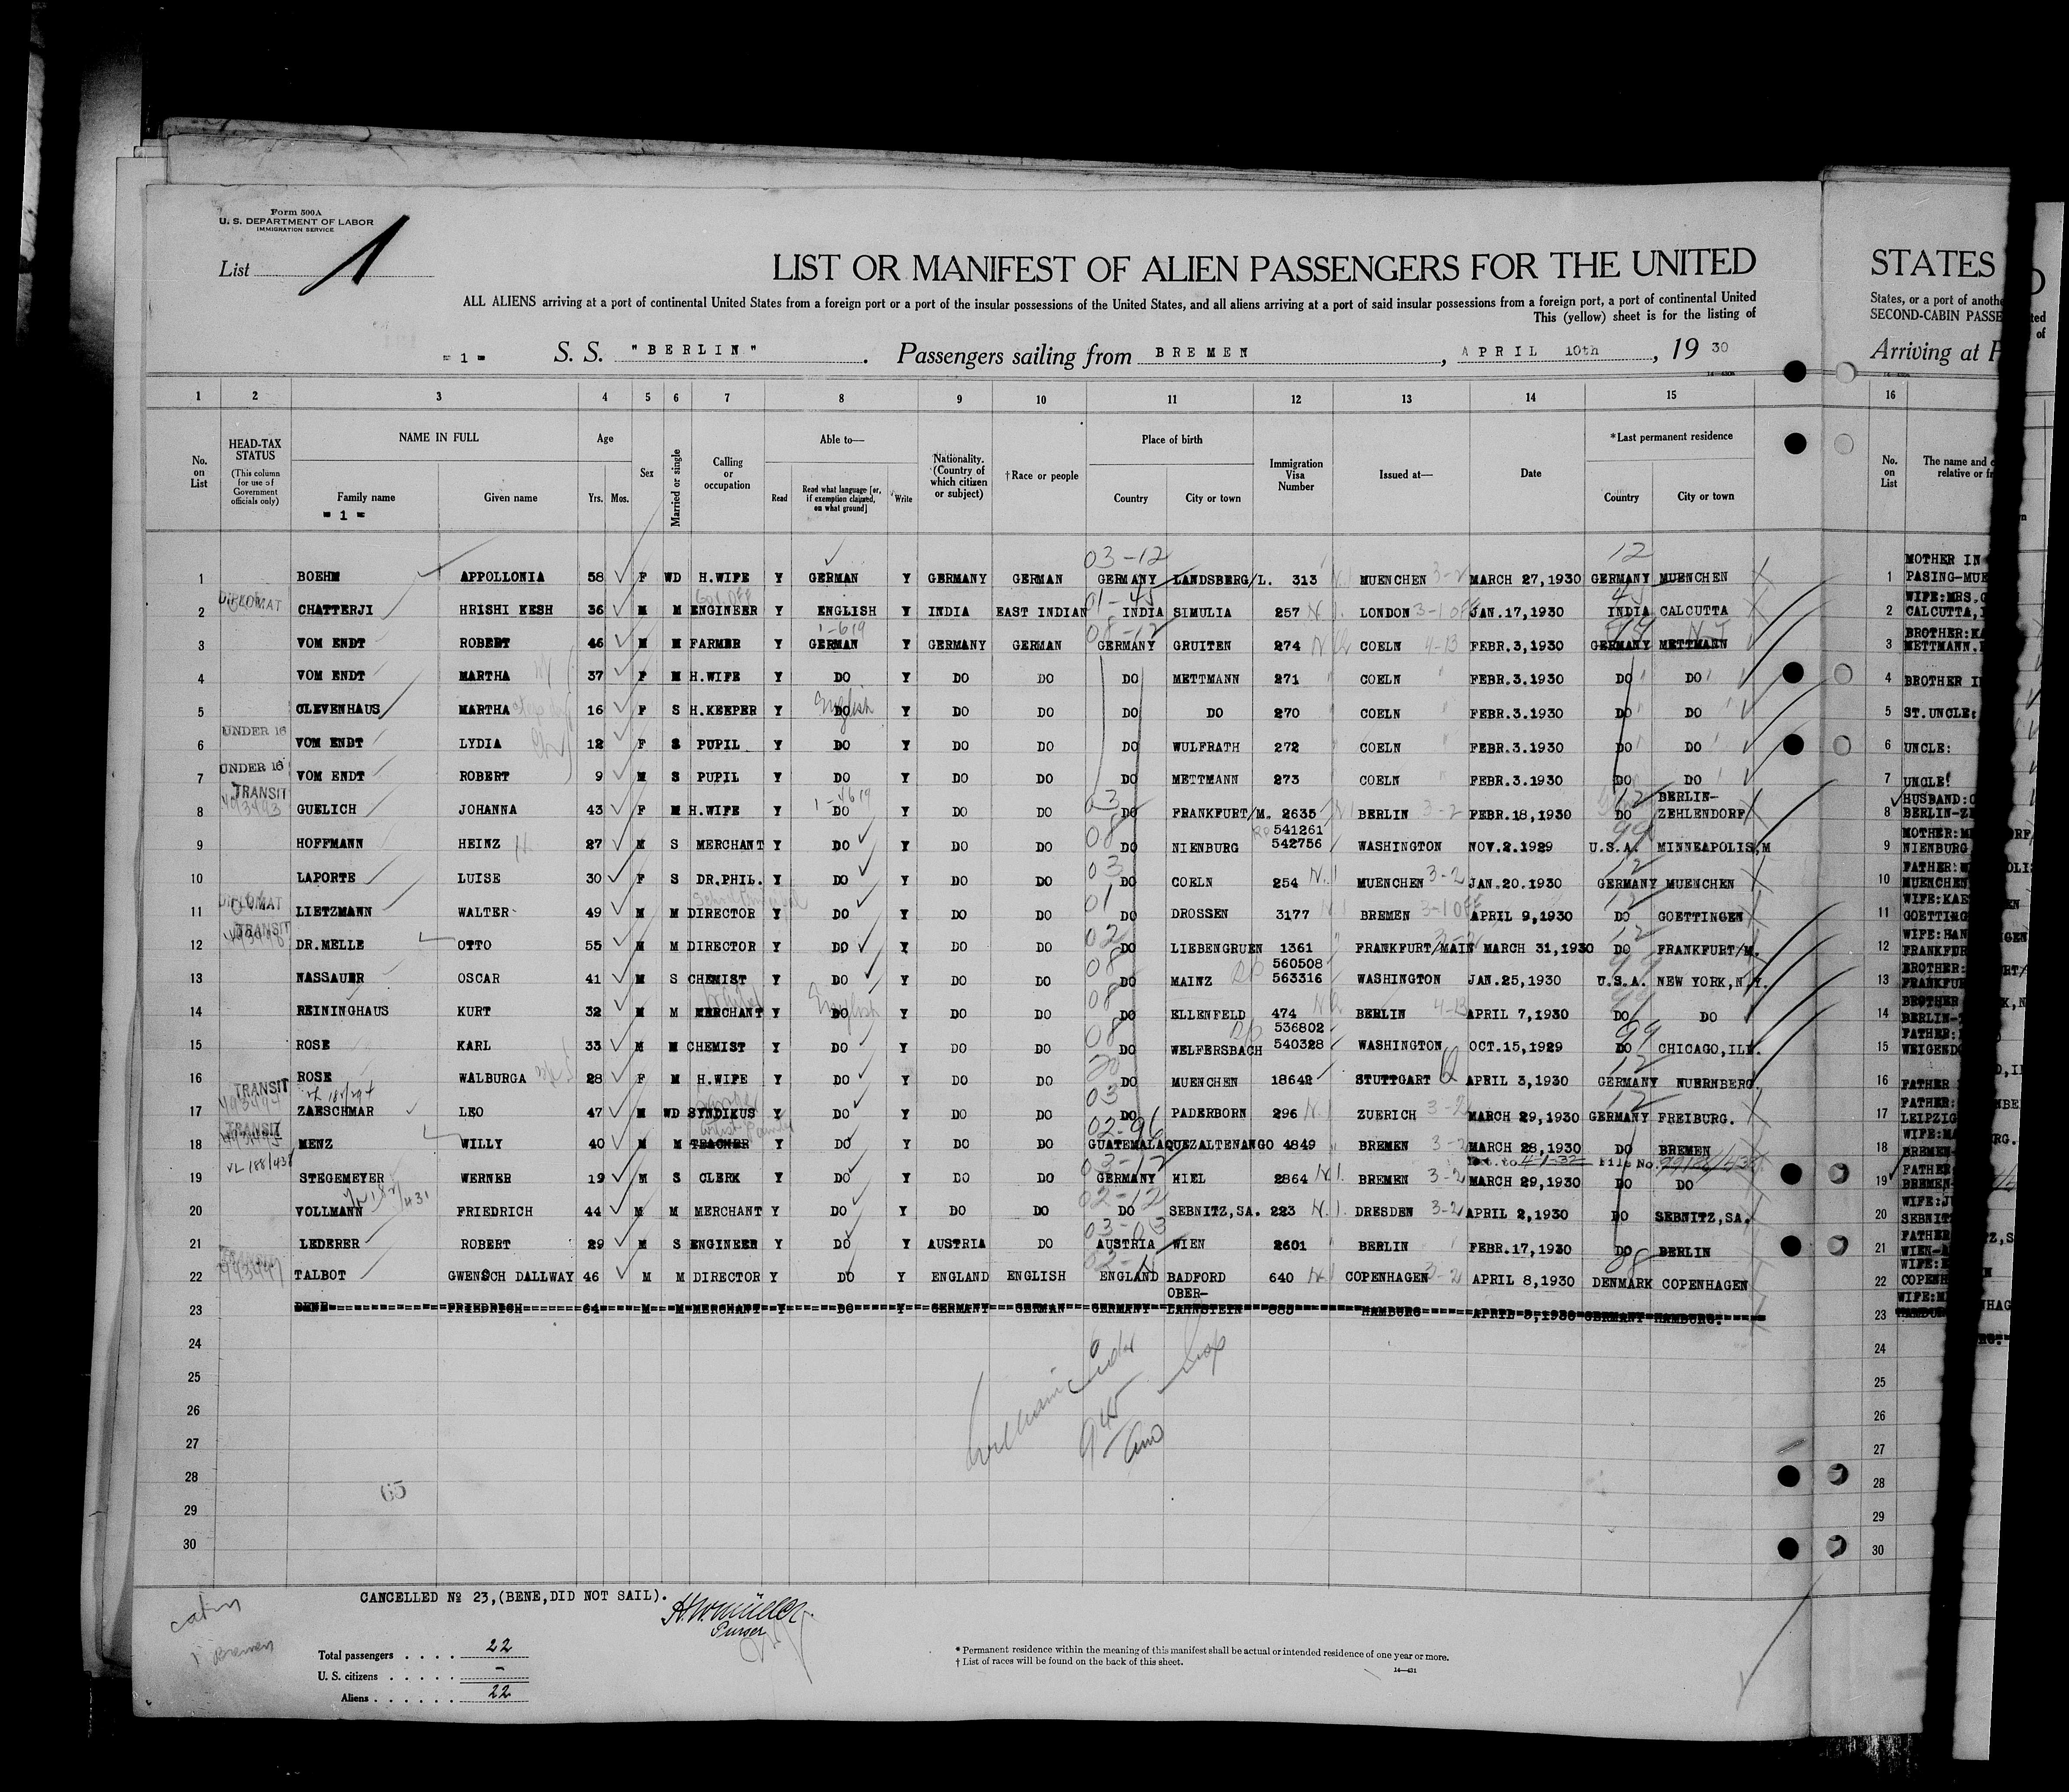 Form 500A
U. S. DEPARTMENT OF LABOR
IMMIGRATION SERVICE
List 1
LIST OR MANIFEST OF ALIEN PASSENGERS FOR THE UNITED
ALL ALIENS arriving at a port of continental United States from a foreign port or a port of the insular possessions of the United States, and all aliens arriving at a port of said insular possessions from a foreign port, a port of continental United
This (yellow) sheet is for the listing of
= 1 = S. S. "BERLIN". Passengers sailing from BREMEN, APRIL 10th, 19 30
14—430a
1 2 3 4 5 6 7 8 9 10 11 12 13 14 15
No. on List
HEAD-TAX STATUS
(This column for use of Government officials only)
NAME IN FULL
Family name
= 1 =
Given name
Age
Yrs. Mos.
Sex
Married or single
Calling or occupation
Able to—
Read
Read what language [or, if exemption claimed, on what ground]
Write
Nationality. (Country of which citizen or subject)
†Race or people
Place of birth
Country City or town
Immigration Visa Number
Issued at—
Date
*Last permanent residence
Country City or town
03-12 12
1 BOEHM APPOLLONIA 58 F WD H.WIFE Y GERMAN Y GERMANY GERMAN GERMANY LANDSBERG/L. 313 MUENCHEN 3-2 MARCH 27,1930 GERMANY MUENCHEN
DIPLOMAT Gov. Off 01-45 45
2 CHATTERJI HRISHI KESH 36 M M ENGINEER Y ENGLISH Y INDIA EAST INDIAN INDIA SIMULIA 257 LONDON 3-1 Off JAN.17,1930 INDIA CALCUTTA
1-619 08-12
3 VOM ENDT ROBERT 46 M M FARMER Y GERMAN Y GERMANY GERMAN GERMANY GRUITEN 274 COELN 4-13 FEBR.3,1930 GERMANY METTMANN
4 VOM ENDT MARTHA 37 F M H.WIFE Y DO Y DO DO DO METTMANN 271 COELN FEBR.3.1930 DO DO
English
5 CLEVENHAUS MARTHA 16 F S H.KEEPER Y DO Y DO DO DO DO 270 COELN FEBR.3.1930 DO DO
UNDER 16
6 VOM ENDT LYDIA 12 F S PUPIL Y DO Y DO DO DO WULFRATH 272 COELN FEBR.3.1930 DO DO
UNDER 16
7 VOM ENDT ROBERT 9 M S PUPIL Y DO Y DO DO DO METTMANN 273 COELN FEBR.3.1930 DO DO
TRANSIT 03 12 BERLIN-
8 493493 GUELICH JOHANNA 43 F M H.WIFE Y DO Y DO DO DO FRANKFURT/M. 2635 BERLIN 3-2 FEBR.18,1930 DO ZEHLENDORF
08 541261 99
9 HOFFMANN HEINZ 27 M S MERCHANT Y DO Y DO DO DO NIENBURG 542756 WASHINGTON NOV.2.1929 U.S.A. MINNEAPOLIS,M
03 12
10 LAPORTE LUISE 30 F S DR.PHIL. Y DO Y DO DO DO COELN 254 N.1 MUENCHEN 3-2 JAN.20.1930 GERMANY MUENCHEN
DIPLOMAT School Principal 01 12
11 LIETZMANN WALTER 49 M M DIRECTOR Y DO Y DO DO DO DROSSEN 3177 BREMEN 3-1 Off APRIL 9,1930 DO GOETTINGEN
TRANSIT 02 12
12 493498 DR.MELLE OTTO 55 M M DIRECTOR Y DO Y DO DO DO LIEBENGRUEN 1361 FRANKFURT/MAIN MARCH 31,1930 DO FRANKFURT/M.
08 560508 99
13 NASSAUER OSCAR 41 M S CHEMIST Y DO Y DO DO DO MAINZ 563316 WASHINGTON JAN.25,1930 U.S.A. NEW YORK,N.Y.
English 08 99
14 REININGHAUS KURT 32 M M MERCHANT Y DO Y DO DO DO ELLENFELD 474 BERLIN 4-13 APRIL 7,1930 DO DO
08 536802 99
15 ROSE KARL 33 M M CHEMIST Y DO Y DO DO DO WELFERSBACH 540328 WASHINGTON OCT.15,1929 DO CHICAGO,ILL.
20 12
16 ROSE WALBURGA 28 F M H.WIFE Y DO Y DO DO DO MUENCHEN 18642 STUTTGART APRIL 3,1930 GERMANY NUERNBERG.
TRANSIT 03 12
17 493494 ZAESCHMAR LEO 47 M WD SYNDIKUS Y DO Y DO DO DO PADERBORN 296 ZUERICH 3-2 MARCH 29,1930 GERMANY FREIBURG.
TRANSIT 02-96
18 493495 MENZ WILLY 40 M M TEACHER Y DO Y DO DO GUATEMALA QUEZALTENANGO 4849 BREMEN 3-2 MARCH 28,1930 DO BREMEN
VL 188/431 03-12 Ext. to 4-1-32 File No.
19 STEGEMEYER WERNER 19 M S CLERK Y DO Y DO DO GERMANY KIEL 2864 N.1. BREMEN 3-2 MARCH 29,1930 DO DO
02-12
20 VOLLMANN FRIEDRICH 44 M M MERCHANT Y DO Y DO DO DO SEBNITZ,SA. 223 N.1. DRESDEN 3-2 APRIL 2,1930 DO SEBNITZ,SA.
03-03
21 LEDERER ROBERT 29 M S ENGINEER Y DO Y AUSTRIA DO AUSTRIA WIEN 2601 BERLIN FEBR.17,1930 DO BERLIN
TRANSIT 08
22 493497 TALBOT GWENSCH DALLWAY 46 M M DIRECTOR Y DO Y ENGLAND ENGLISH ENGLAND BADFORD 640 COPENHAGEN 3-2 APRIL 8,1930 DENMARK COPENHAGEN
OBER-
23 BENE FRIEDRICH 64 M M MERCHANT Y DO Y GERMANY GERMAN GERMANY LAHNSTEIN 885 HAMBURG APRIL 5,1930 GERMANY HAMBURG.
24
25
26
27
28
29
30
65
945
CANCELLED № 23,(BENE,DID NOT SAIL).
H.W.Müller.
Purser
cabin
Bremen
Total passengers . . . . 22
U. S. citizens . . . . . -
Aliens . . . . . . 22
* Permanent residence within the meaning of this manifest shall be actual or intended residence of one year or more.
† List of races will be found on the back of this sheet.
14—431
STATES
States, or a port of anothe
SECOND-CABIN PASSE
Arriving at
16
No. on List
The name and
relative or fr
MOTHER IN
1 PASING-MUE
WIFE:MRS.
2 CALCUTTA,
BROTHER:KA
3 METTMANN.
4 BROTHER I
5 ST.UNCLE:
6 UNCLE:
7 UNCLE:
HUSBAND:
8 BERLIN-ZE
MOTHER:
9 NIENBURG
FATHER:
10 MUENCHEN
WIFE:KAE
11 GOETTING
WIFE:HAN
12 FRANKFUR
BROTHER:
13 FRANKFUR
BROTHER
14 BERLIN-
FATHER:
15 WEIGENDO
16 FATHER
FATHER:
17 LEIPZIG
WIFE:
18 BREMEN-
FATHER
19 BREMEN-
WIFE:
20 SEBNITZ
FATHER
21 WIEN-
WIFE:
22 COPENH
WIFE:
23 HAMBUR
24
25
26
27
28
29
30